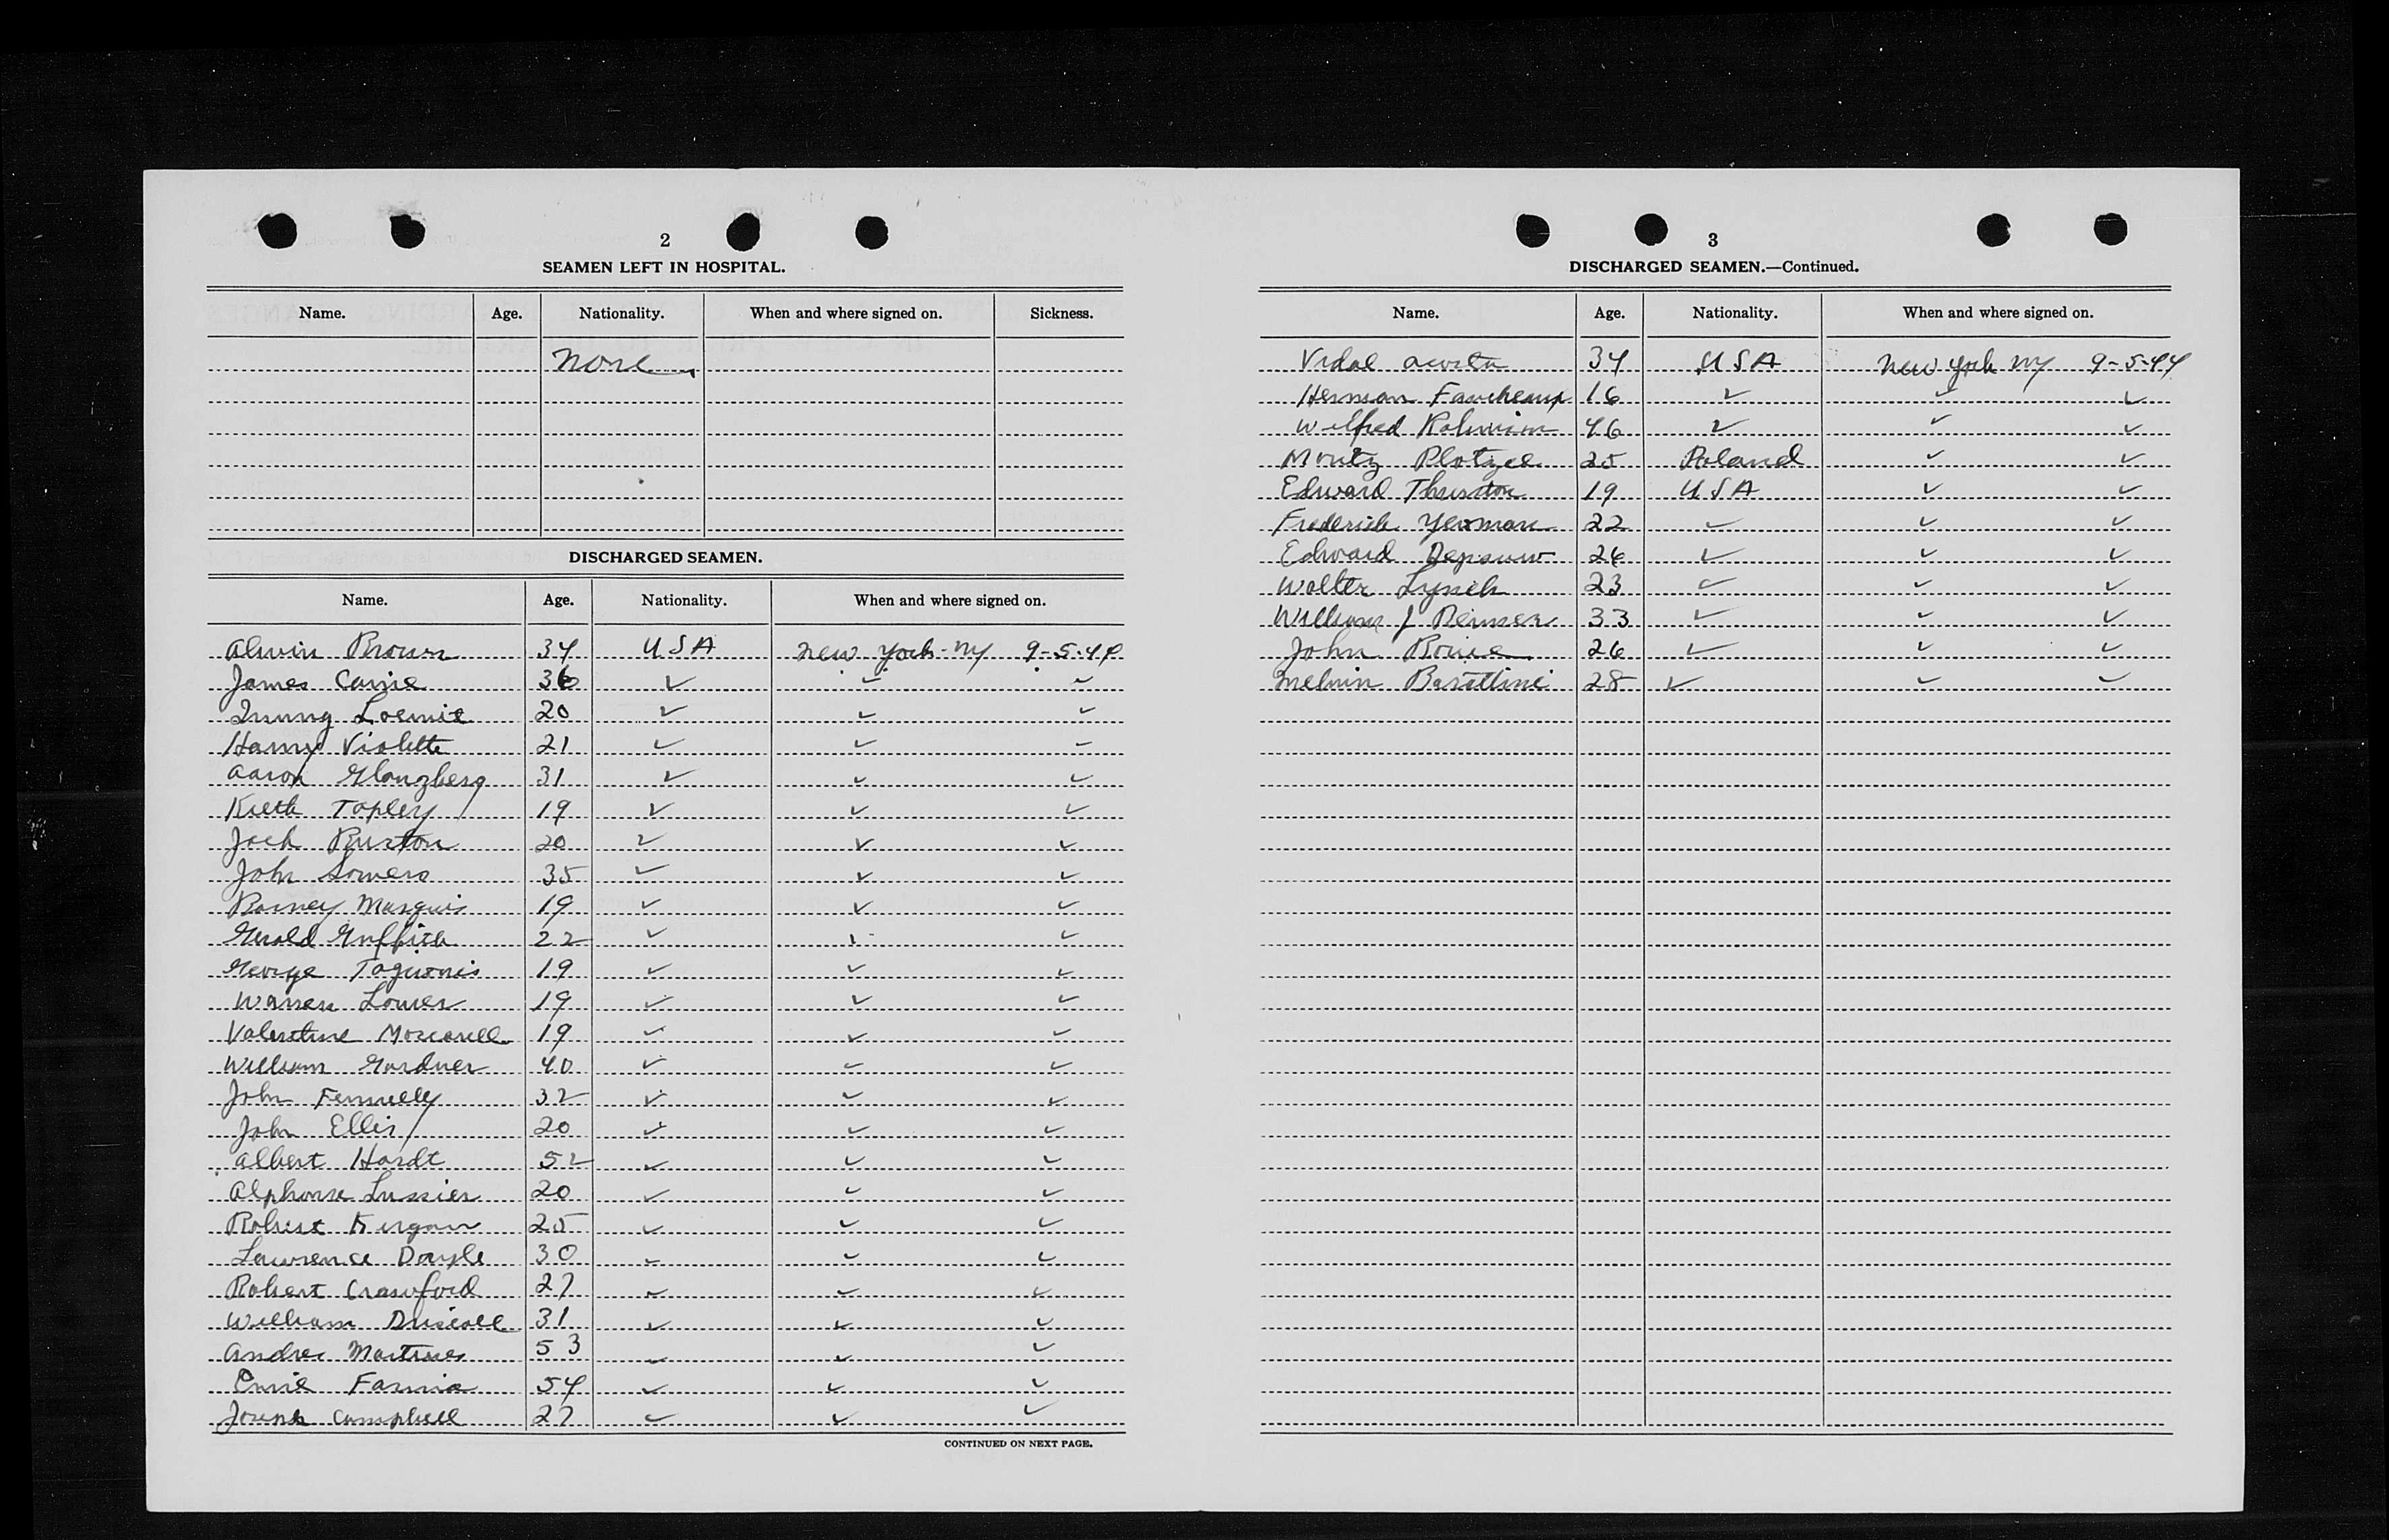 2
SEAMEN LEFT IN HOSPITAL.
Name. Age. Nationality. When and where signed on. Sickness.
None
DISCHARGED SEAMEN.
Name. Age. Nationality. When and where signed on.
Alwin Brown 34 USA New York NY 9-5-44
James Caine 36 ✓ ✓ ✓
20 ✓ ✓ ✓
Harry Violette 21 ✓ ✓ ✓
Aaron Glanzberg 31 ✓ ✓ ✓
Kieth Tapley 19 ✓ ✓ ✓
Jack Burton 20 ✓ ✓ ✓
John Somers 35 ✓ ✓ ✓
Barney Marquis 19 ✓ ✓ ✓
Gerald Griffith 22 ✓ ✓ ✓
George 19 ✓ ✓ ✓
Warren Lower 19 ✓ ✓ ✓
Valentine 19 ✓ ✓ ✓
William Gardner 40 ✓ ✓ ✓
John Fennelly 32 ✓ ✓ ✓
John Ellis 20 ✓ ✓ ✓
Albert Hardt 52 ✓ ✓ ✓
Alphonse Lussier 20 ✓ ✓ ✓
Robert 25 ✓ ✓ ✓
Lawrence Doyle 30 ✓ ✓ ✓
Robert Crawford 27 ✓ ✓ ✓
William Driscoll 31 ✓ ✓ ✓
Andres Martines 53 ✓ ✓ ✓
54 ✓ ✓ ✓
Joseph Campbell 27 ✓ ✓ ✓
CONTINUED ON NEXT PAGE.
3
DISCHARGED SEAMEN.—Continued.
Name. Age. Nationality. When and where signed on.
Vidal Acosta 34 USA New York NY 9-5-44
Herman Faucheaux 16 ✓ ✓ ✓
Wilfred 46 ✓ ✓ ✓
Plotzel 25 Poland ✓ ✓
Edward Thurston 19 USA ✓ ✓
Frederick Yeoman 22 ✓ ✓ ✓
Edward 26 ✓ ✓ ✓
Walter Lynch 23 ✓ ✓ ✓
William J 33 ✓ ✓ ✓
John Bowie 26 ✓ ✓ ✓
Melvin Barattini 28 ✓ ✓ ✓